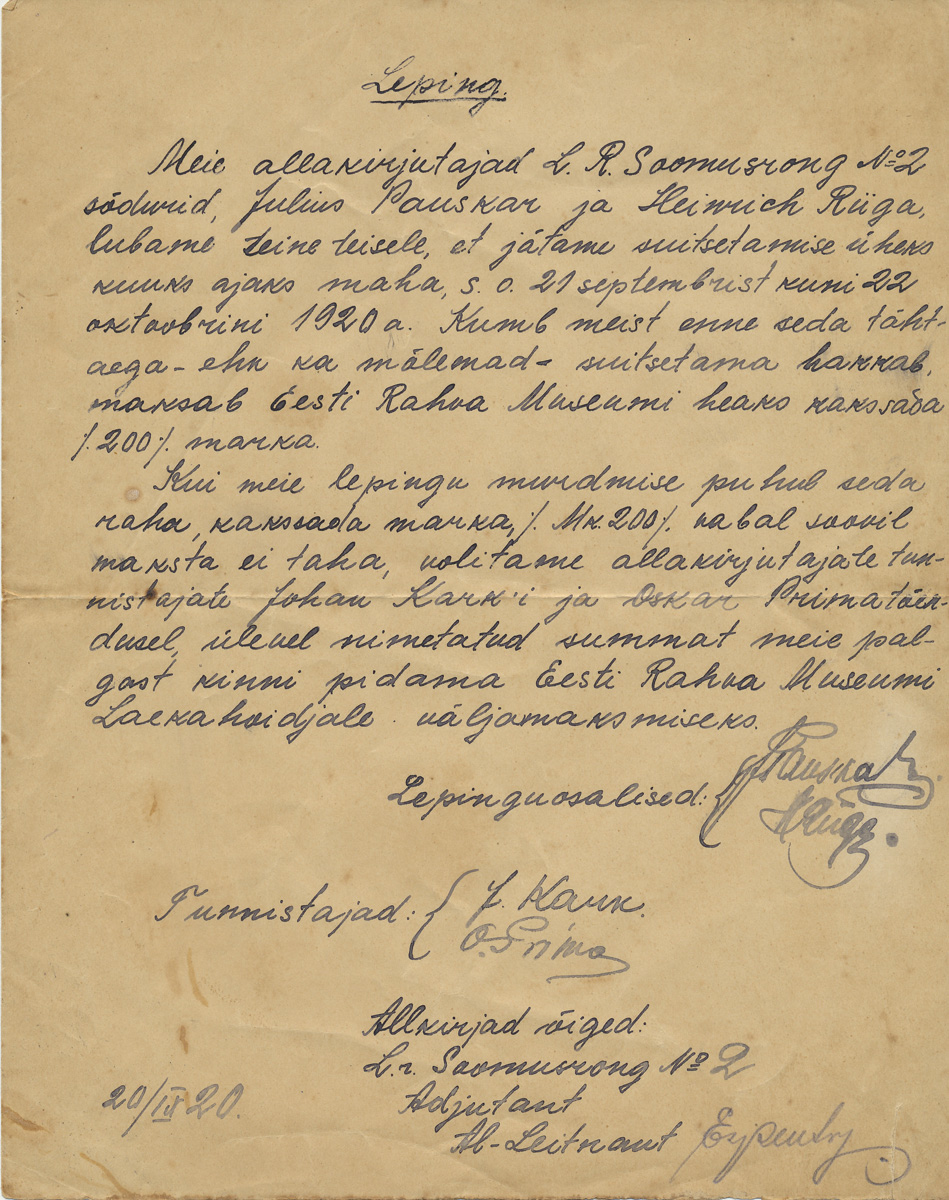 Leping.
Meie allakirjutajad L. R. Soomusrong № 2
sõdurid, Julius Pauskar ja Heinrich Riiga,
lubame teine teisele, et jätame suitsetamise üheks
kuuks ajaks maha, s. o. 21 septembrist kuni 22
oktoobrini 1920 a. Kumb meist enne seda täht-
aega - ehk ka mõlemad - suitsetama hakkab,
maksab Eesti Rahva Museumi heaks kakssada
/.200/. marka.
Kui meie lepingu murdmise puhub seda
raha, kakssada marka, /. Mk. 200/. vabal soovil
maksta ei taha, volitame allakirjutajate tun-
nistajate Johan Kark'i ja Oskar Prima tõen-
dusel, ülevel nimetatud summat meie pal-
gast kinni pidama Eesti Rahva Museumi
Laekahoidjale väljamaksmiseks.
Lepinguosalised: { JPauskar
HRiiga.
Tunnistajad: { J. Kark.
O. Prima
Allkirjad õiged:
L. r. Soomusrong № 2
20/IX 20. Adjutant
Al-Leitnant